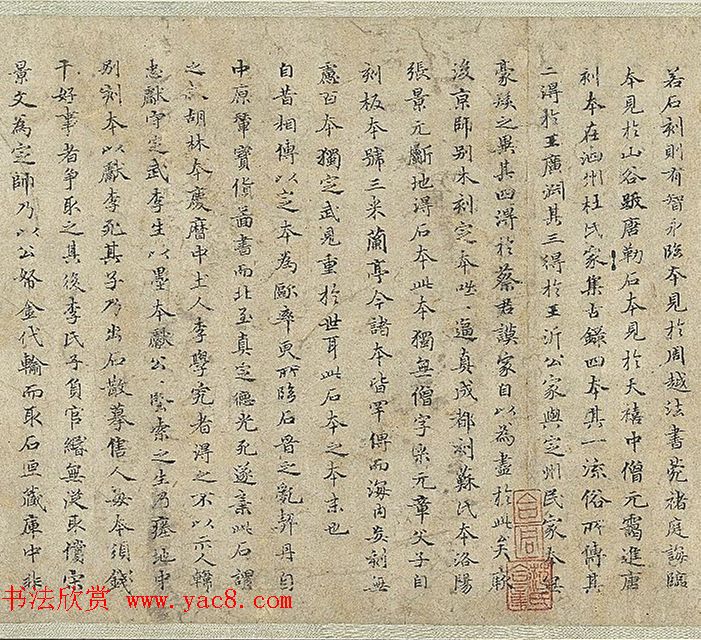 若石刻則有智永臨本見於周越法書苑褚庭誨臨
本見於山谷跋唐勒石本見於天禧中僧元靄進唐
刻本在泗州杜氏家集古錄四本其一流俗所傳其
二得於王廣淵其三得於王沂公家與定州民家本無
豪髮之異其四得於蔡君謨家自以為盡於此矣厥
後京師別木刻定本咄〻逼真成都刻蘇氏本洛陽
張景元斸地得石本此本獨無僧字米元章父子自
刻板本號三米蘭亭今諸本皆罕傳而海內妄刻無
慮百本獨定武見重於世耳此石本之本末也
自昔相傳以定本為歐率更所臨石晉之亂契丹自
中原輦寶貨圖書而北至真定德光死遂棄此石謂
之胡林本慶曆中土人李學究者得之不以示人韓
忠獻守定武李生以墨本獻公〻堅索之生乃瘞地中
別刻本以獻李死其子乃出石散摹售人每本須錢
干好事者爭取之其後李氏子負官緡無從取償宋
景文為定帥乃以公帑金代輸而取石匣藏庫中非
合同
书法欣赏 www.yac8.com